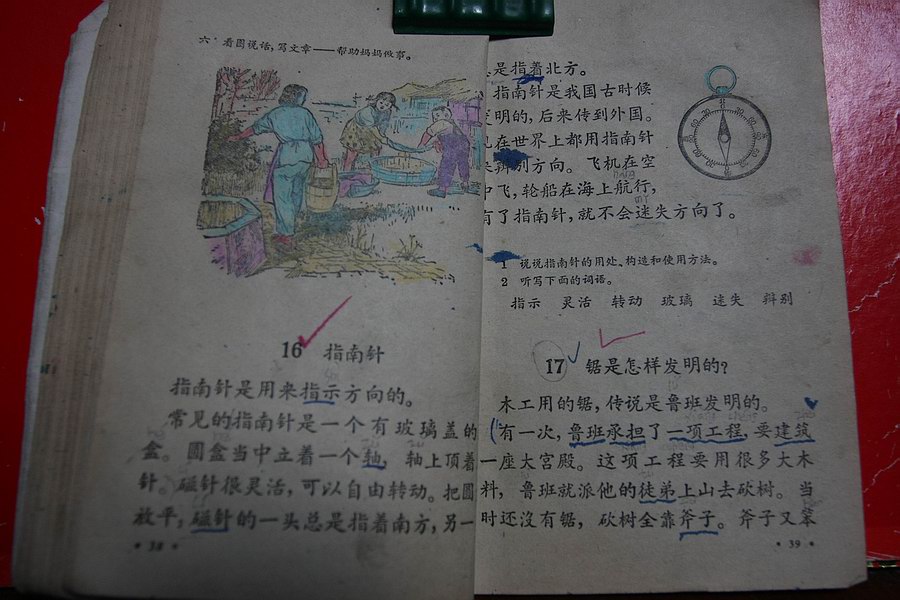 六 看图说话,写文章——帮助妈妈做事。
16 指南针
指南针是用来指示方向的。
常见的指南针是一个有玻璃盖的
盒。圆盒当中立着一个轴,轴上顶着
针。磁针很灵活,可以自由转动。把圆
放平,磁针的一头总是指着南方,另一
• 38 •
是指着北方。
指南针是我国古时候
明的,后来传到外国。
在世界上都用指南针
辨别方向。飞机在空
中飞,轮船在海上航行,
有了指南针,就不会迷失方向了。
1 说说指南针的用处、构造和使用方法。
2 听写下面的词语。
指示 灵活 转动 玻璃 迷失 辩别
17 锯是怎样发明的?
木工用的锯,传说是鲁班发明的。
有一次,鲁班承担了一项工程,要建筑
一座大宫殿。这项工程要用很多大木
料,鲁班就派他的徒弟上山去砍树。当
时还沒有锯,砍树全靠斧子。斧子又笨
• 39 •